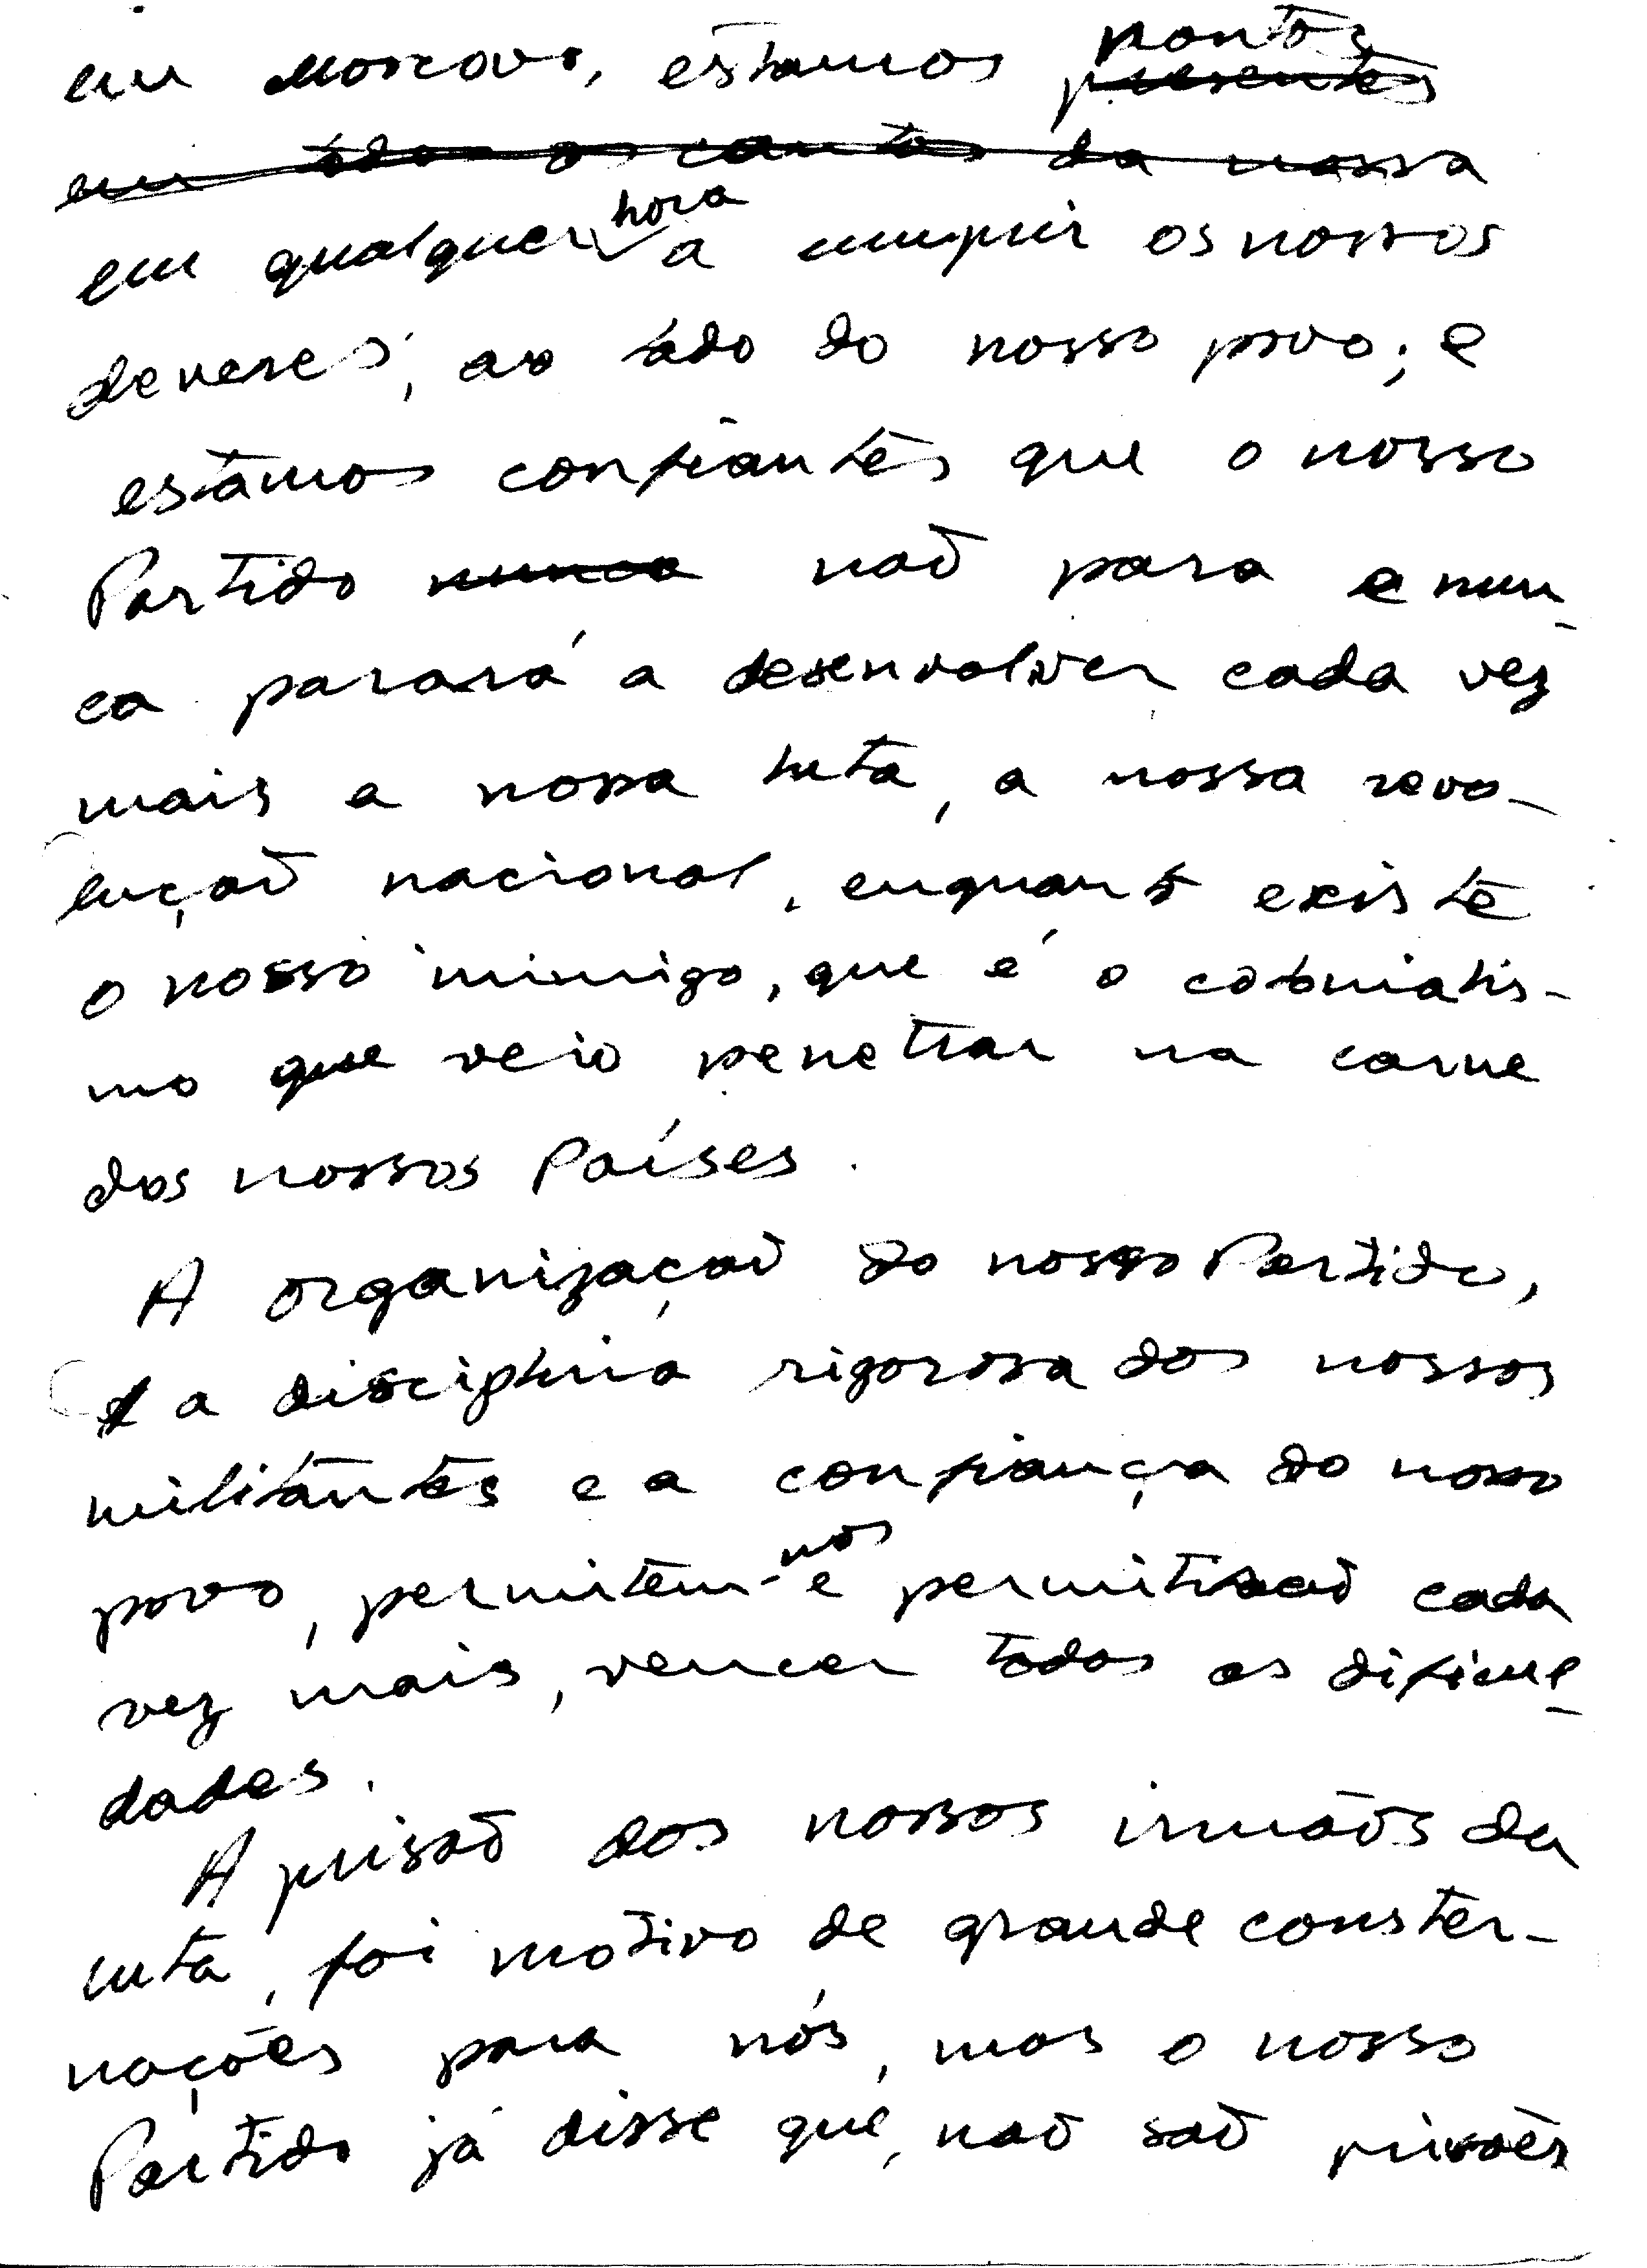 em Moscovo, estamos prontos presentes
em todos os cantos da nossa
em qualquer hora a cumprir os nossos
deveres, ao lado do nosso povo; e
estamos confiantes que o nosso
Partido nunca não para e nun-
ca parará a desenvolver cada vez
mais a nossa luta, a nossa revo-
lução nacional, enquanto existe
o nosso inimigo, que é o colonialis-
mo que veio penetrar na carne
dos nossos Países.
A organização do nosso Partido,
e a disciplina rigorosa dos nossos
militantes e a confiança do nosso
povo, permitem-nos e permitirão cada
vez mais, vencer todas as dificul-
dades.
A prisão dos nossos irmãos da
luta, foi motivo de grande conster-
nações para nós, mas o nosso
Partido já disse que, não são prisões